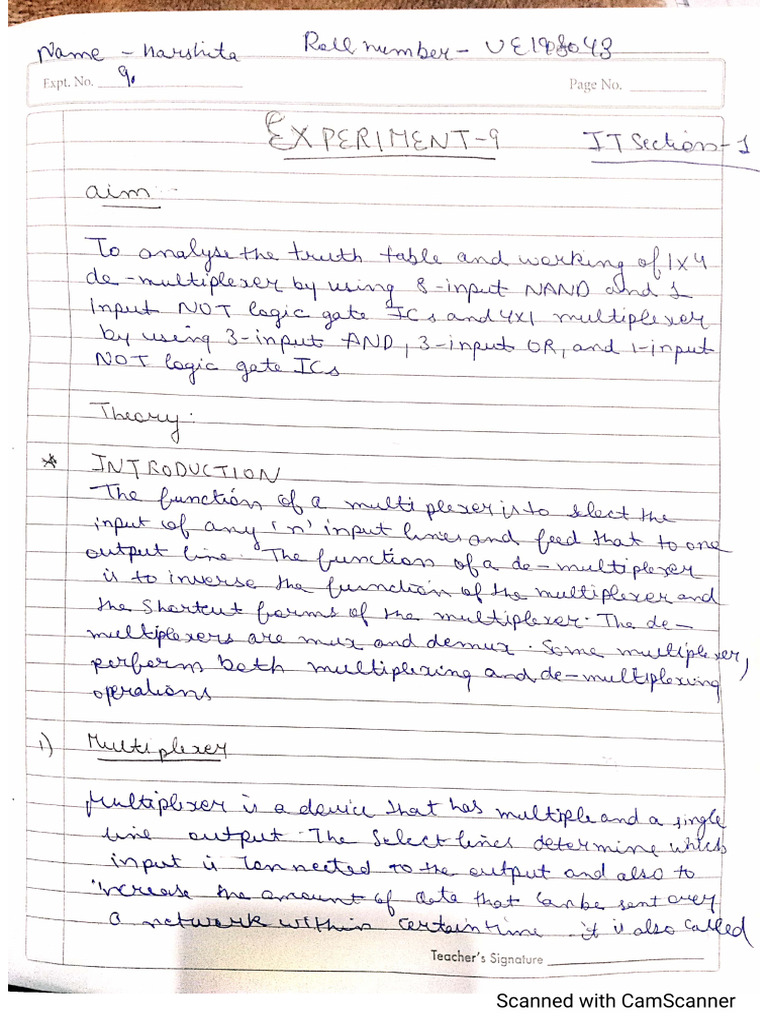 Name - Harshita Roll number - UE198043
Expt. No. 9. Page No.
EXPERIMENT-9 IT Section-1
aim:-
To analyse the truth table and working of 1x4
de-multiplexer by using 8-input NAND and 1
Input NOT logic gate ICs and 4x1 multiplexer
by using 3-input AND, 3-input OR, and 1-input
NOT logic gate ICs
Theory:
* INTRODUCTION
The function of a multiplexer is to select the
input of any 'n' input lines and feed that to one
output line. The function of a de-multiplexer
is to inverse the function of the multiplexer and
the shortcut forms of the multiplexer. The de-
multiplexers are mux and demux. Some multiplexer,
perform both multiplexing and de-multiplexing
operations
1) Multiplexer
Multiplexer is a device that has multiple and a single
line output. The select lines determine which
input is connected to the output and also to
increase the amount of data that can be sent over
a network within certain time. it is also called
Teacher's Signature
Scanned with CamScanner